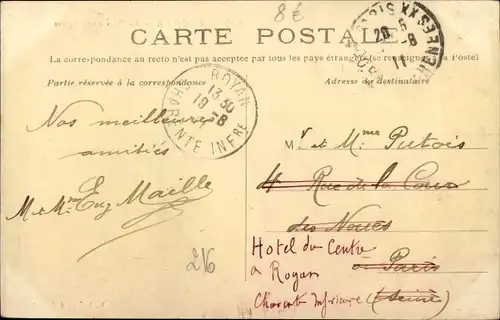 8€
CARTE POSTALE
La correspondance au recto n'est pas acceptée par tous les pays étrangers (se renseigner à la Poste)
Partie réservée à la correspondance
Adresse du destinataire
ROYAN
13 30
19 -8
CHARENTE INFRE
20 -8
Nos meilleures
amitiés
M et Mme Eug Maille
216
Mr et Mme Putois
4 Rue de la Cour
des Noues
à Paris
(Seine)
Hotel du Centre
à Royan
Charente Inférieure